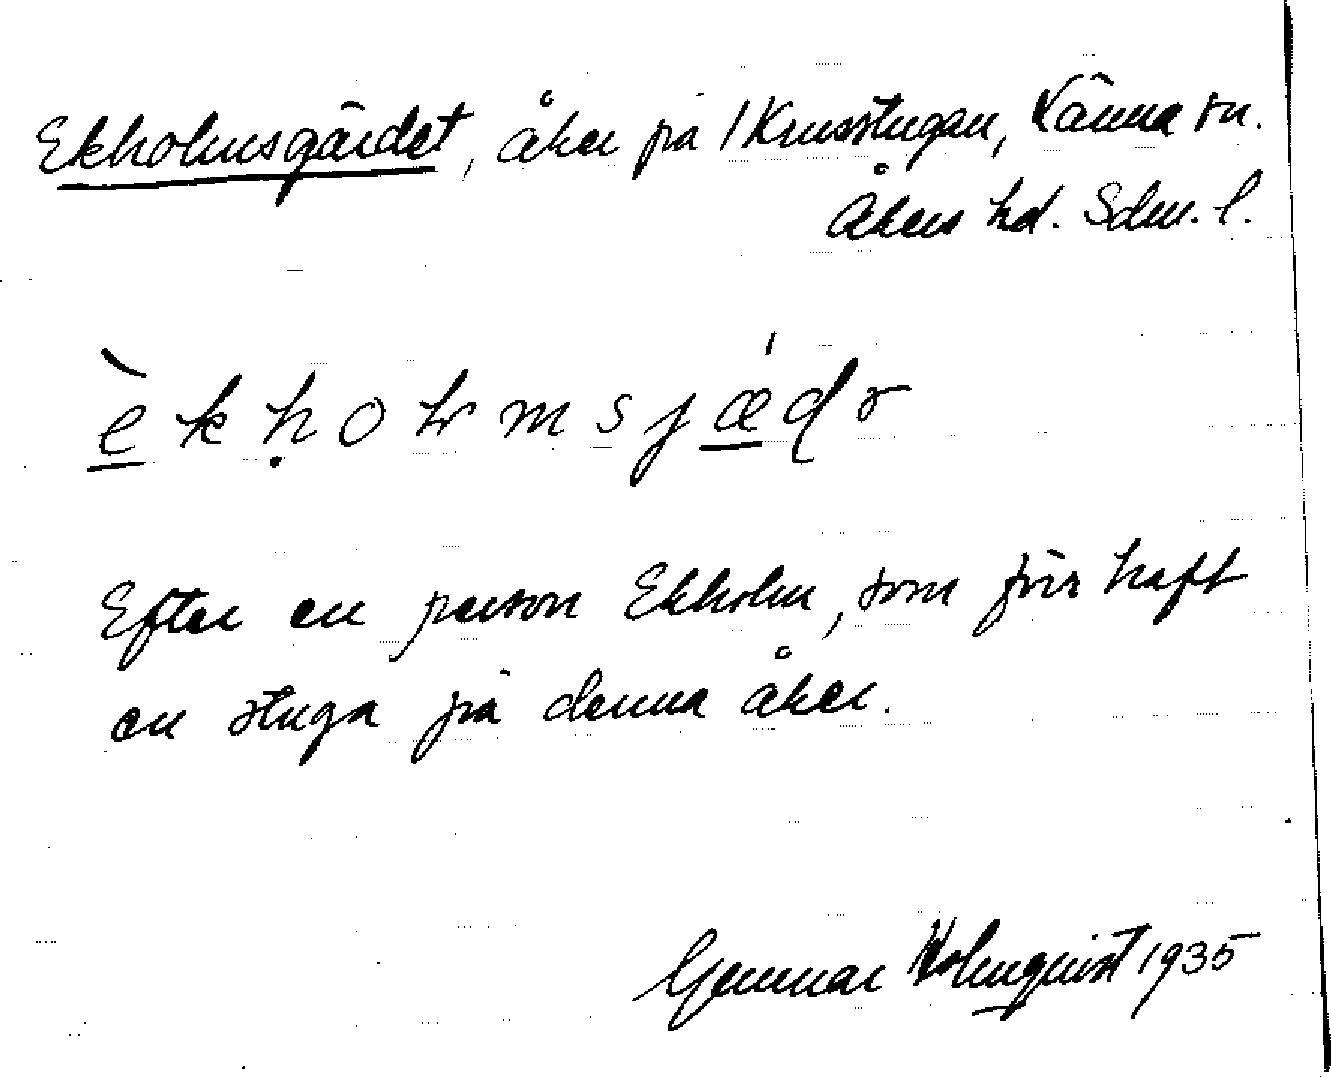 Ekholmsgärdet, åker på 1 Krusstugan, Länna sn.
Åkers hd. Sdm. l.
Efter en person Ekholm, som förr haft
en stuga på denna åker.
Gunnar Holmquist 1935